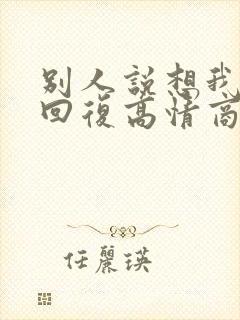 别人説想我
回復高情商
任麗瑛